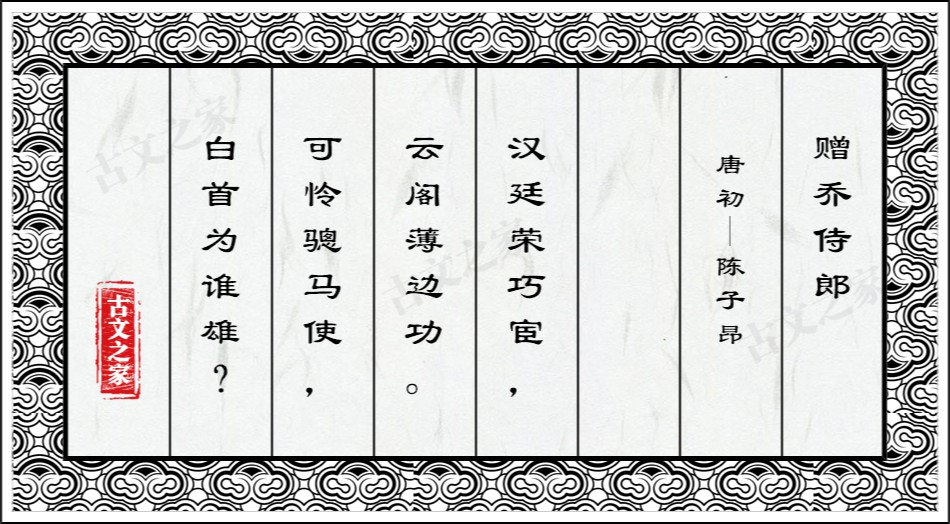 赠乔侍郎
唐初—陈子昂
汉廷荣巧宦，
云阁薄边功。
可怜骢马使，
白首为谁雄？
古文之家
古文之家
古文之家
古文之家